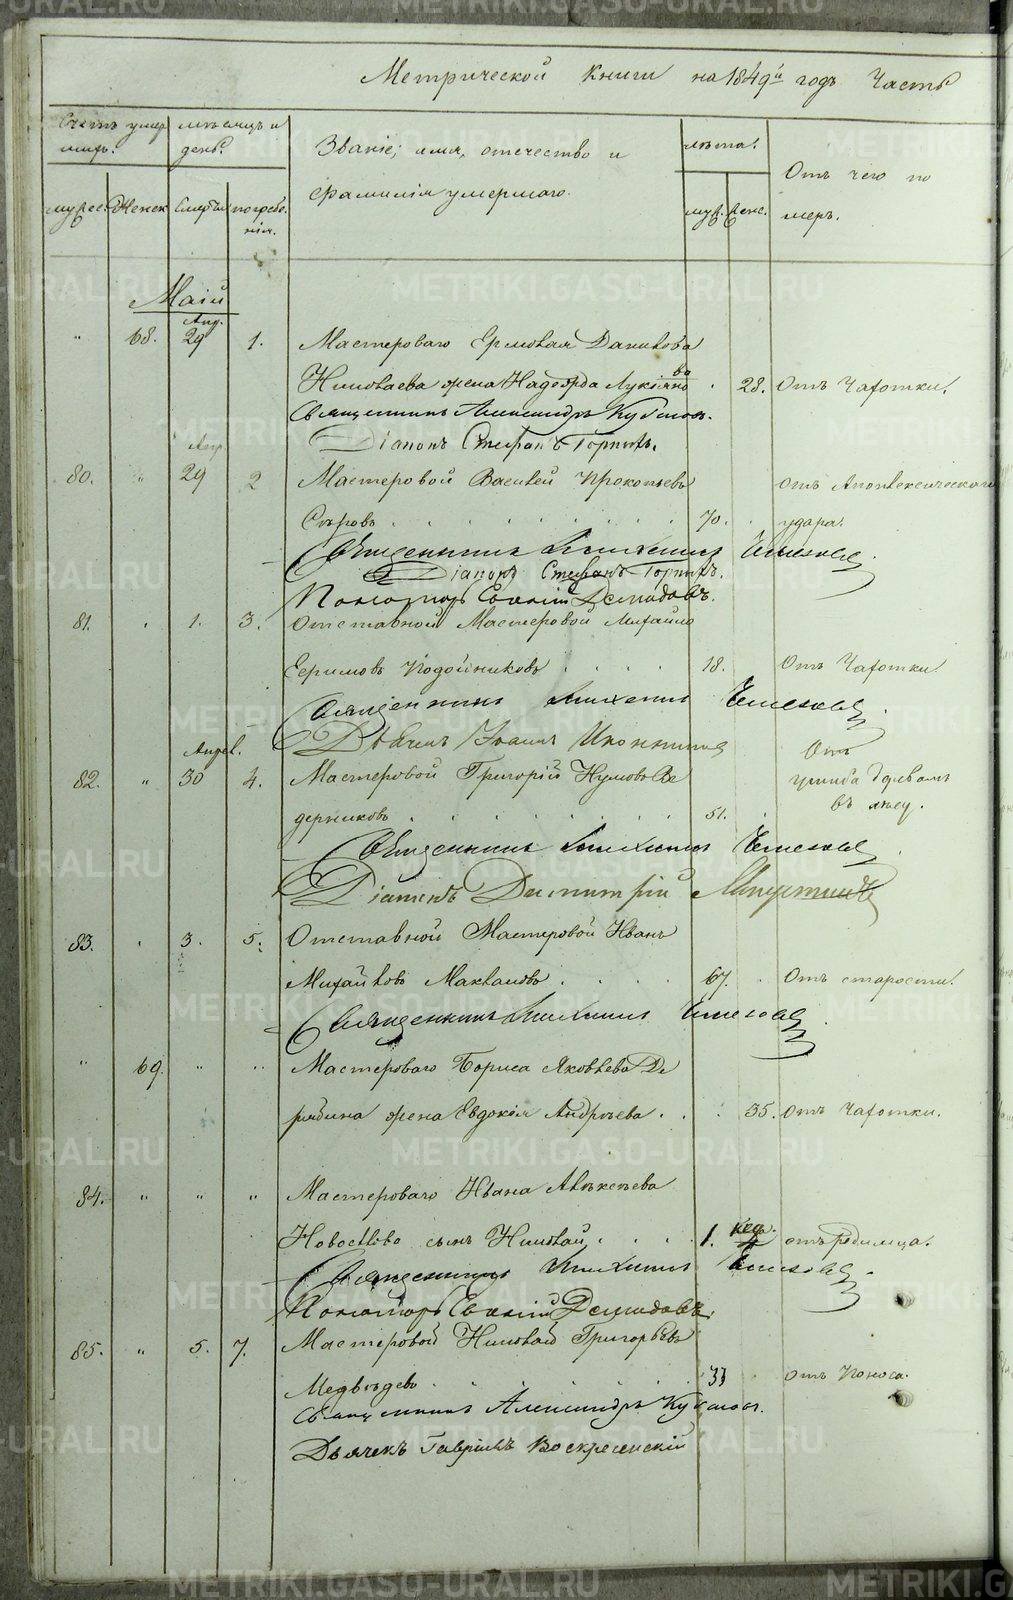 Метрической Книги на 1849й годъ Часть
Счетъ умер
шихъ.
мѣсяцъ и
день.
Званіе, имя, отечество и
фамилія умершаго.
лѣта.
Отъ чего по
меръ.
мужес.
Женск
Смерти
погребе.
нія.
муж.
женс.
Маій
Апр.
" 68. 29 1. Мастероваго Ермолая Данилова
Николаева жена Надежда Лукіяно
ва
28. Отъ Чахотки.
Священникъ Александръ
Діаконъ Стефанъ
Апр.
80. " 29 2 Мастеровой Василей Прокопьевъ
отъ Апоплексическаго
Сѣровъ 70. удара.
Священникъ
Діаконъ Стефанъ
Пономарь Евгеній Демидовъ.
81. 1. 3. Отставной Мастеровой Михайло
Ефимовъ Подойниковъ 18. Отъ Чахотки.
Священникъ
Дьячекъ Іоаннъ
Апрел.
Отъ
82. " 30 4. Мастеровой Григорій Наумовъ Ве
ушиба деревомъ
въ лесу.
дерниковъ 51.
Священникъ
Діаконъ Димитрій
83. 3. 5. Отставной Мастеровой Иванъ
Михайловъ 67. Отъ старости.
Священникъ
" 69. " " Мастероваго Бориса Яковлева Де
рябина жена Евдокія Андреева 35. отъ Чахотки.
84. " " " Мастероваго Ивана Алексѣева
сынъ Николай 1. нед. отъ Родимца.
Священникъ
Пономарь Евгеній Демидовъ.
85. " 5. 7. Мастеровой Николай Григорьевъ
Медвѣдевъ 33 отъ Поноса.
Священникъ Александръ
Дьячекъ Гавріилъ Воскресенскій
METRIKI.GASO-URAL.RU